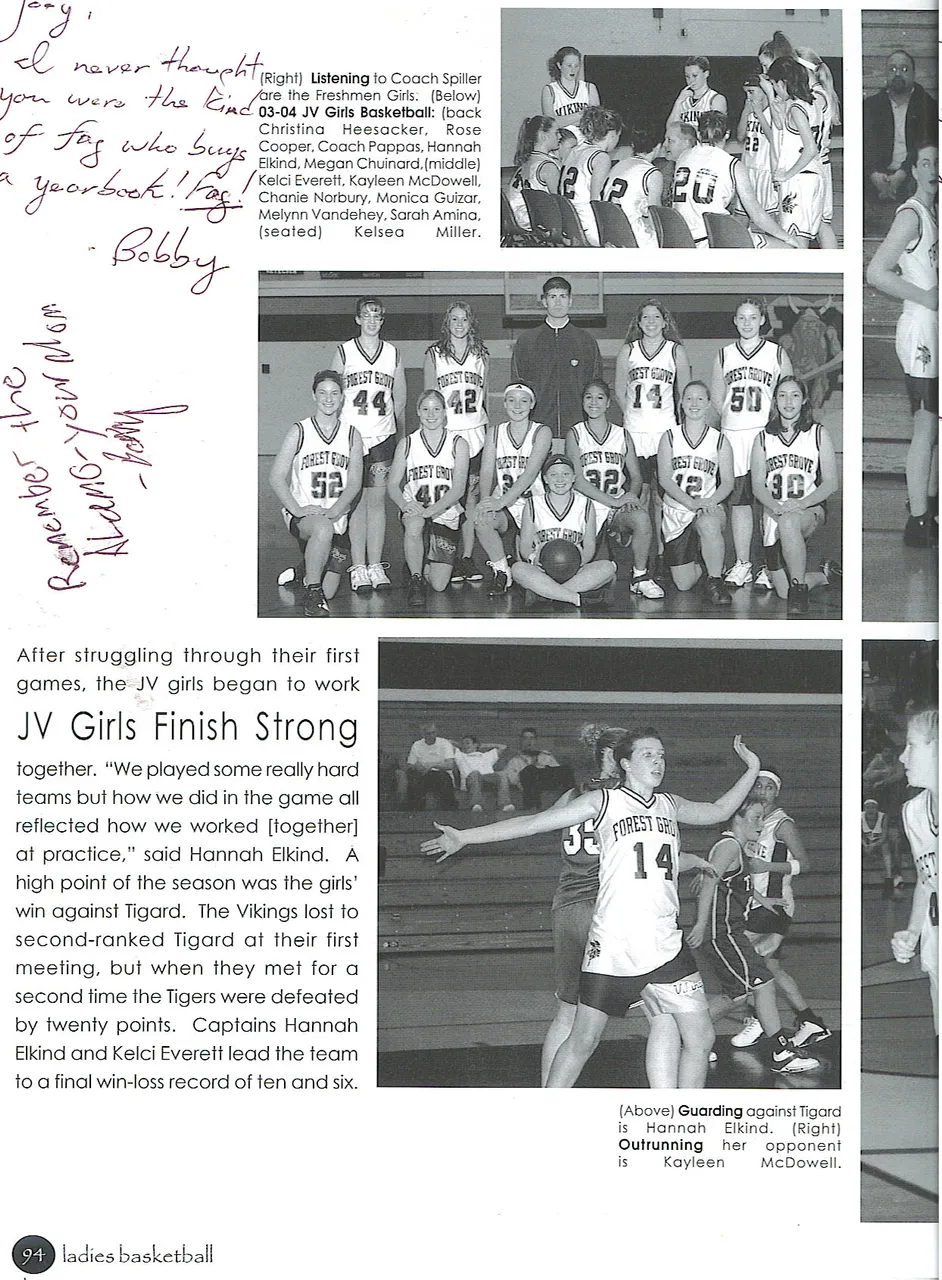 Joey,
I never thought
you were the kind
of fag who buys
a yearbook! Fag!
Bobby
Remember the
Alamo - your Mom
(Right) Listening to Coach Spiller
are the Freshmen Girls. (Below)
03-04 JV Girls Basketball: (back
Christina Heesacker, Rose
Cooper, Coach Pappas, Hannah
Elkind, Megan Chuinard,(middle)
Kelci Everett, Kayleen McDowell,
Chanie Norbury, Monica Guizar,
Melynn Vandehey, Sarah Amina,
(seated) Kelsea Miller.
VIKINGS
22
2
12
20
FOREST GROVE
44
FOREST GROVE
42
FOREST GROVE
14
FOREST GROVE
50
FOREST GROVE
52
FOREST GROVE
40
FOREST GROVE
32
FOREST GROVE
12
FOREST GROVE
30
FOREST GROVE
After struggling through their first
games, the JV girls began to work
JV Girls Finish Strong
together. "We played some really hard
teams but how we did in the game all
reflected how we worked [together]
at practice," said Hannah Elkind. A
high point of the season was the girls'
win against Tigard. The Vikings lost to
second-ranked Tigard at their first
meeting, but when they met for a
second time the Tigers were defeated
by twenty points. Captains Hannah
Elkind and Kelci Everett lead the team
to a final win-loss record of ten and six.
35
FOREST GRO
14
(Above) Guarding against Tigard
is Hannah Elkind. (Right)
Outrunning her opponent
is Kayleen McDowell.
94 ladies basketball